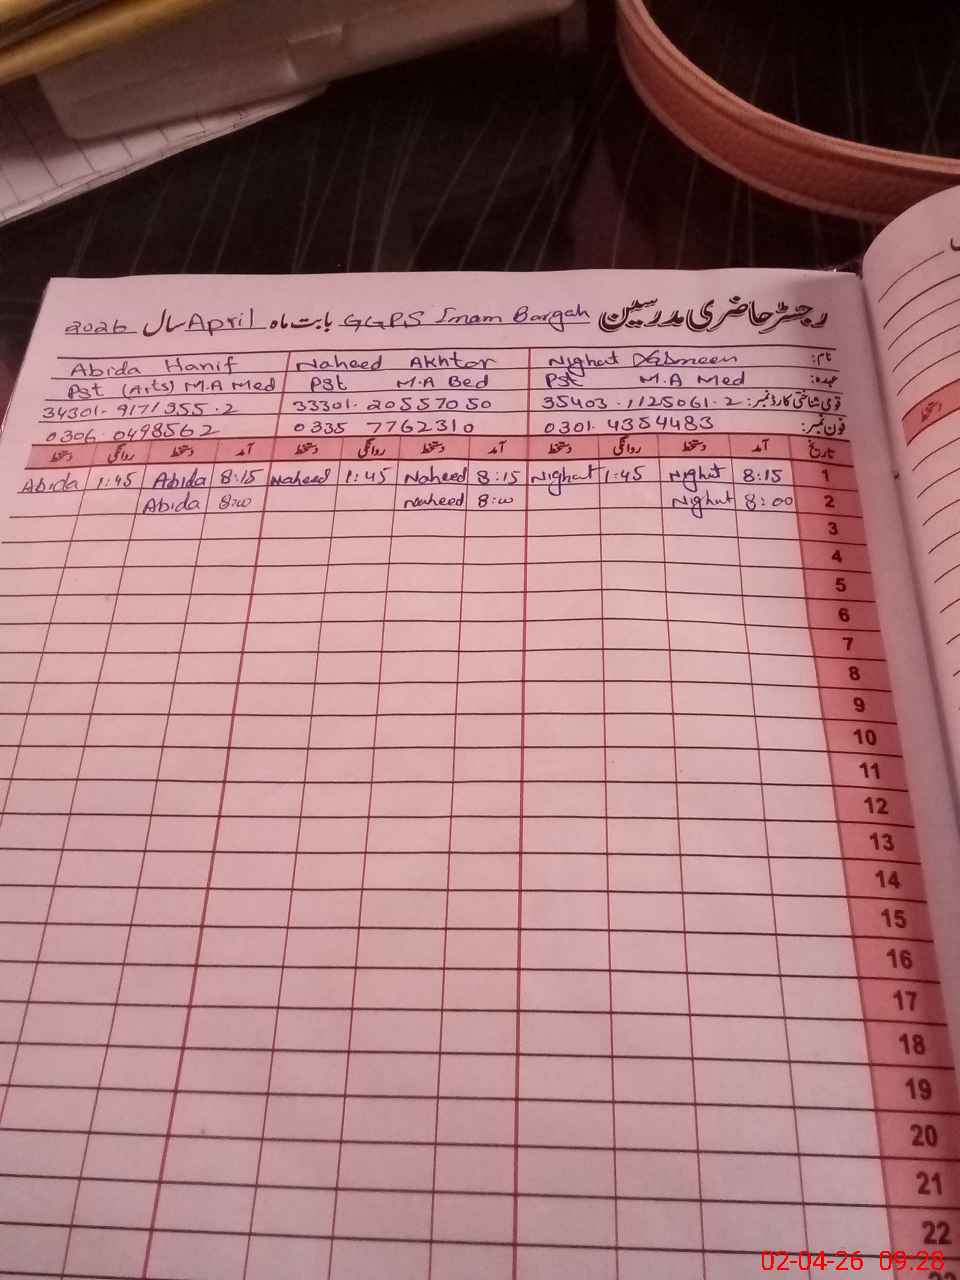 رجسٹر حاضری مدرسین GGPS Imam Bargah بابت ماہ April سال 2026
نام: Nighat Yasmeen Naheed Akhtar Abida Hanif
عہدہ: Pst M.A Med Pst M.A Bed Pst (Arts) M.A Med
قومی شناختی کارڈ نمبر: 35403.1125061.2 33301.2055705 0 34301.9171355.2
فون نمبر: 0301.4354483 0335 7762310 0306.0498562
تاریخ آمد دستخط روانگی دستخط آمد دستخط روانگی دستخط آمد دستخط روانگی دستخط
1 8:15 Nighat 1:45 Nighat 8:15 Naheed 1:45 Naheed 8:15 Abida 1:45 Abida
2 8:00 Nighat 8:00 Naheed 8:00 Abida
3
4
5
6
7
8
9
10
11
12
13
14
15
16
17
18
19
20
21
22
02-04-26 09:28